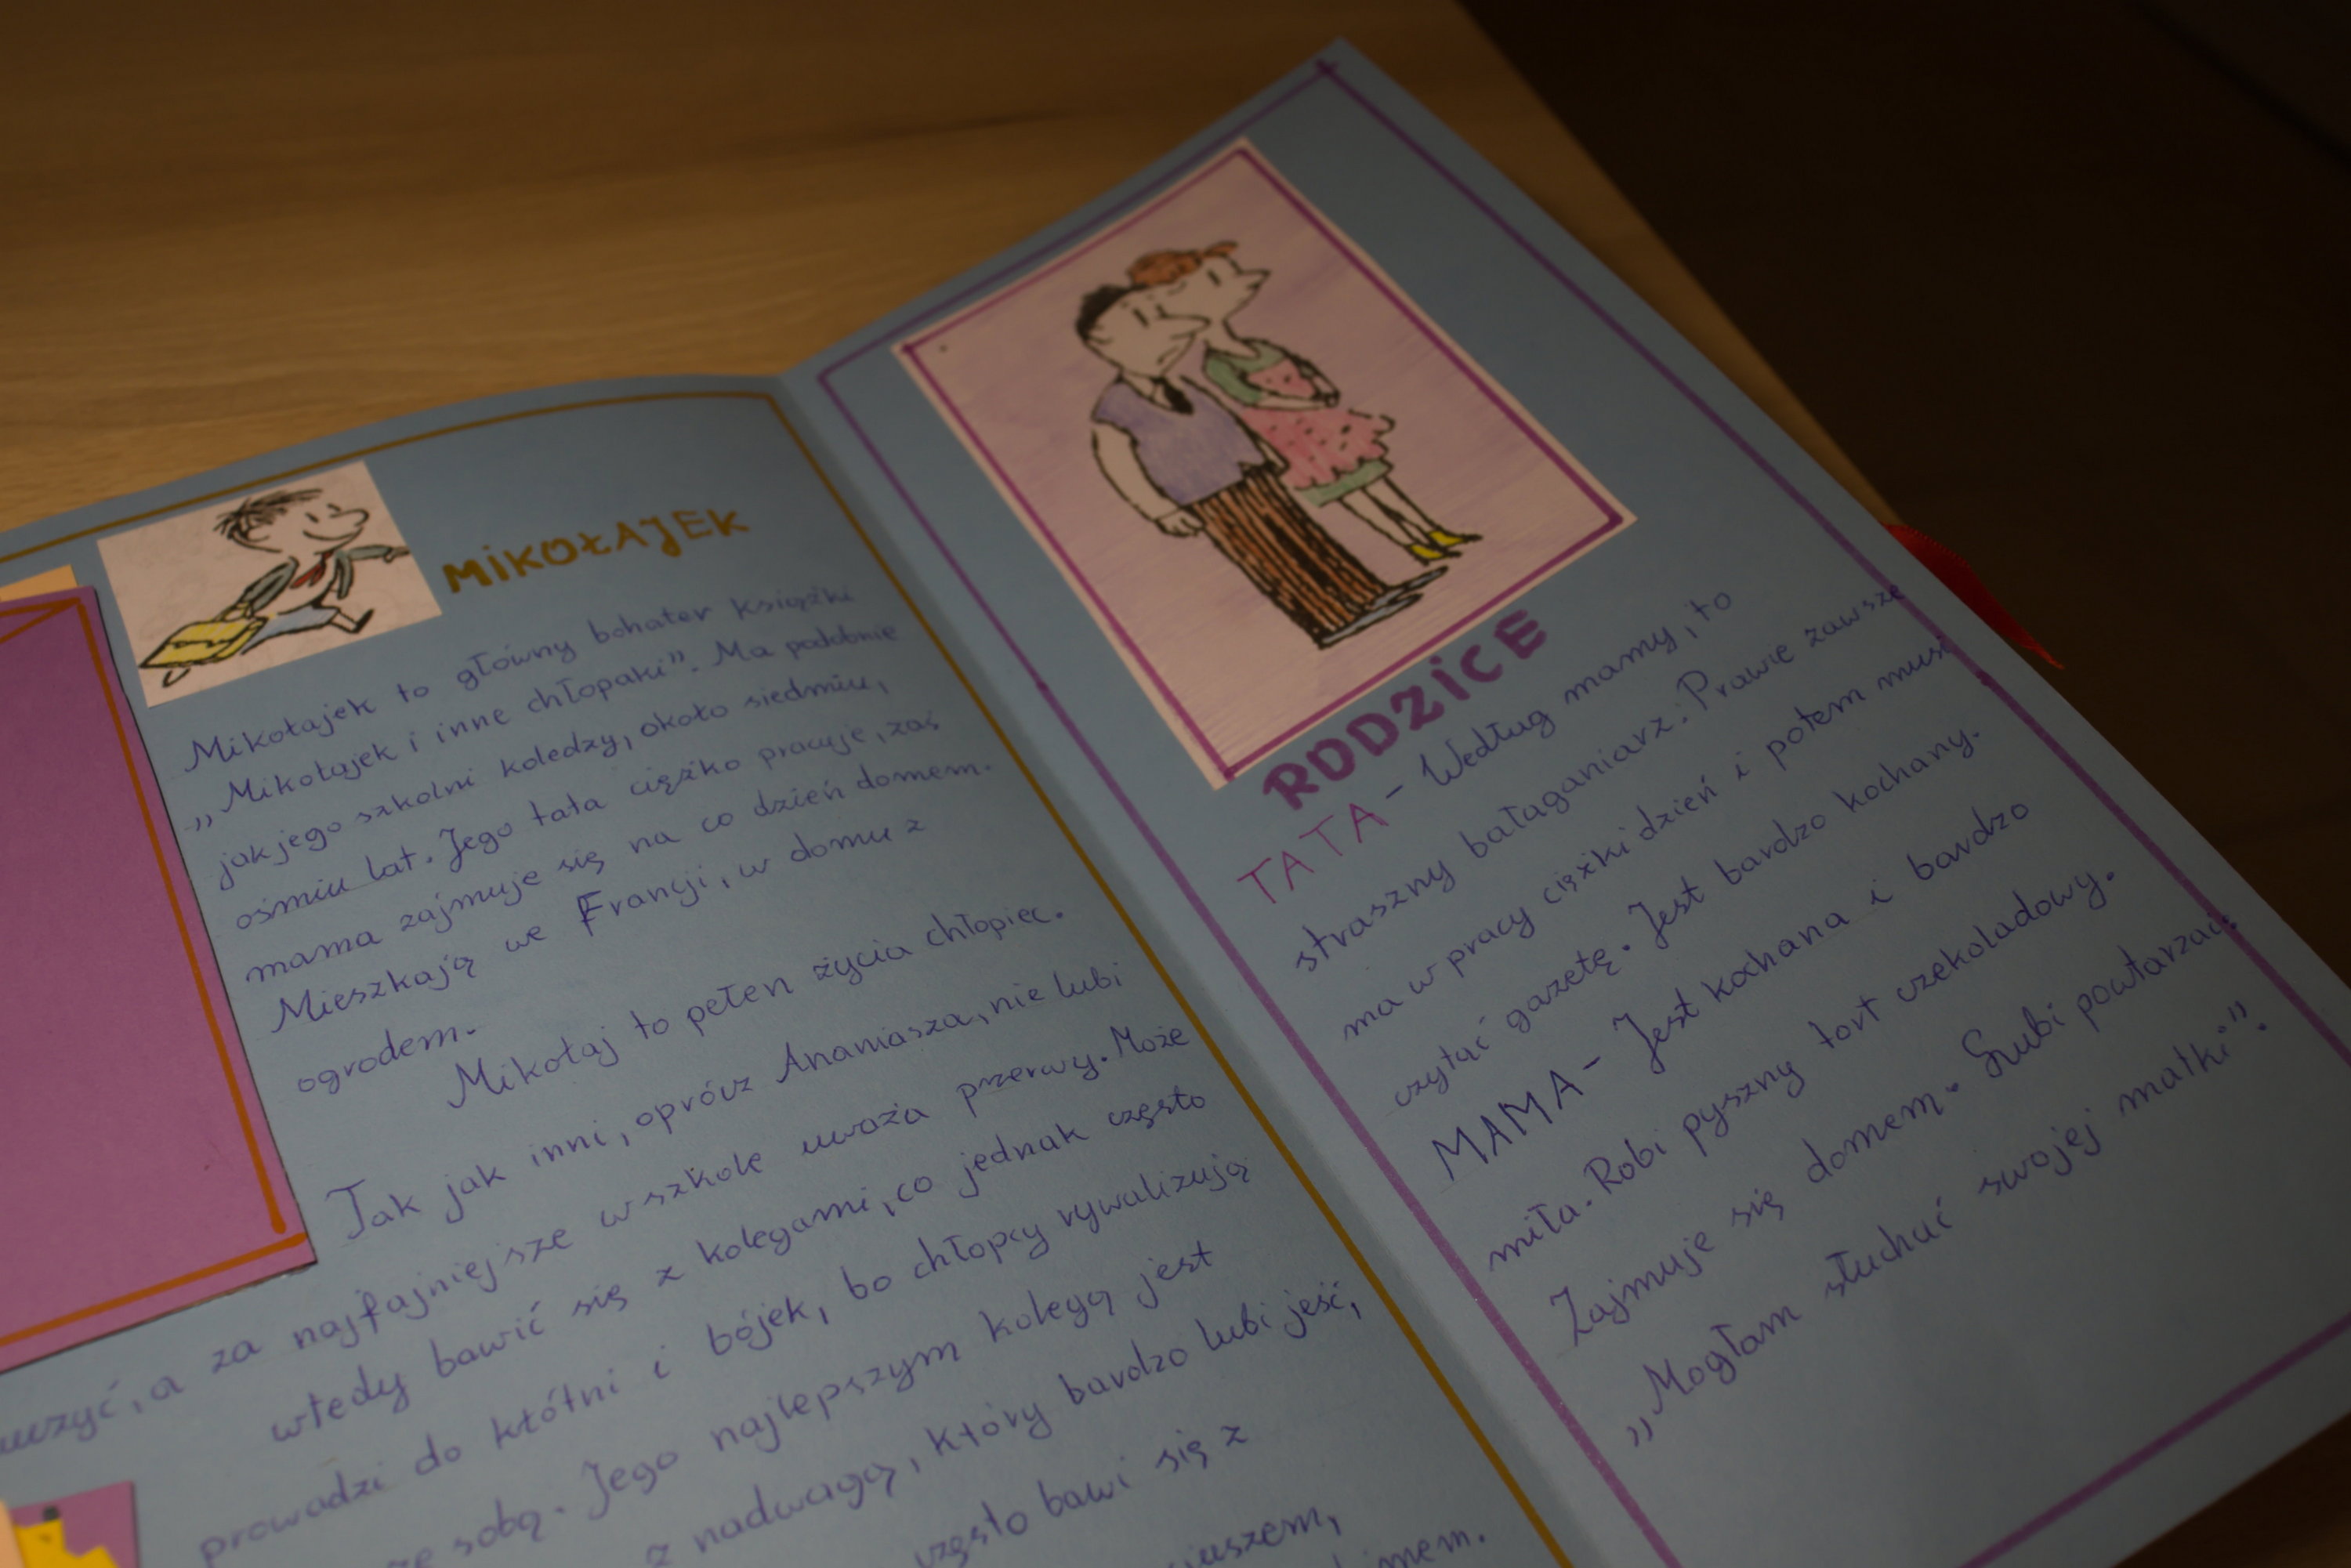 MIKOŁAJEK
Mikołajek to główny bohater książki
„Mikołajek i inne chłopaki”. Ma podobnie
jak jego szkolni koledzy, około siedmiu,
ośmiu lat. Jego tata ciężko pracuje, zaś
mama zajmuje się na co dzień domem.
Mieszkają we Francji, w domu z
ogrodem.
Mikołaj to pełen życia chłopiec.
Tak jak inni, oprócz Ananiasza, nie lubi
uczyć, a za najfajniejsze w szkole uważa przerwy. Może
wtedy bawić się z kolegami, co jednak często
prowadzi do kłótni i bójek, bo chłopcy rywalizują
ze sobą. Jego najlepszym kolegą jest
z nadwagą, który bardzo lubi jeść,
często bawi się z
RODZICE
TATA - Według mamy, to
straszny bałaganiarz. Prawie zawsze
ma w pracy ciężki dzień i potem musi
czytać gazetę. Jest bardzo kochany.
MAMA - Jest kochana i bardzo
miła. Robi pyszny tort czekoladowy.
Zajmuje się domem. Lubi powtarzać:
„Mogłam słuchać swojej matki”.